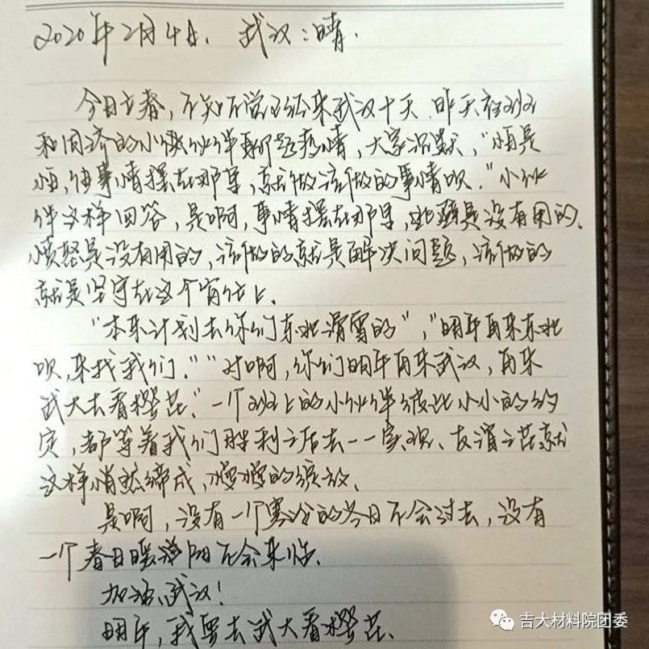 2020年2月4日. 武汉:晴.
今日立春,不知不觉已经来武汉十天.昨天在班上
和同济的小伙伴聊起疫情,大家沉默,"烦是
烦,但事情摆在那里,就做该做的事情呗."小伙
伴这样回答,是啊,事情摆在那里,抱怨是没有用的.
愤怒是没有用的,该做的就是解决问题,该做的
就是坚守在这个岗位上.
"本来计划去你们东北滑雪的","明年再来东北
呗,来找我们.""对啊,你们明年再来武汉,再来
武大去看樱花."一个班上的小伙伴彼此小小的约
定,都等着我们胜利之后去一一实现.友谊之花就
这样悄然缔成,慢慢的绽放.
是啊,没有一个寒冷的冬日不会过去,没有
一个春日暖阳不会来临.
加油,武汉!
明年,我要去武大看樱花.
吉大材料院团委